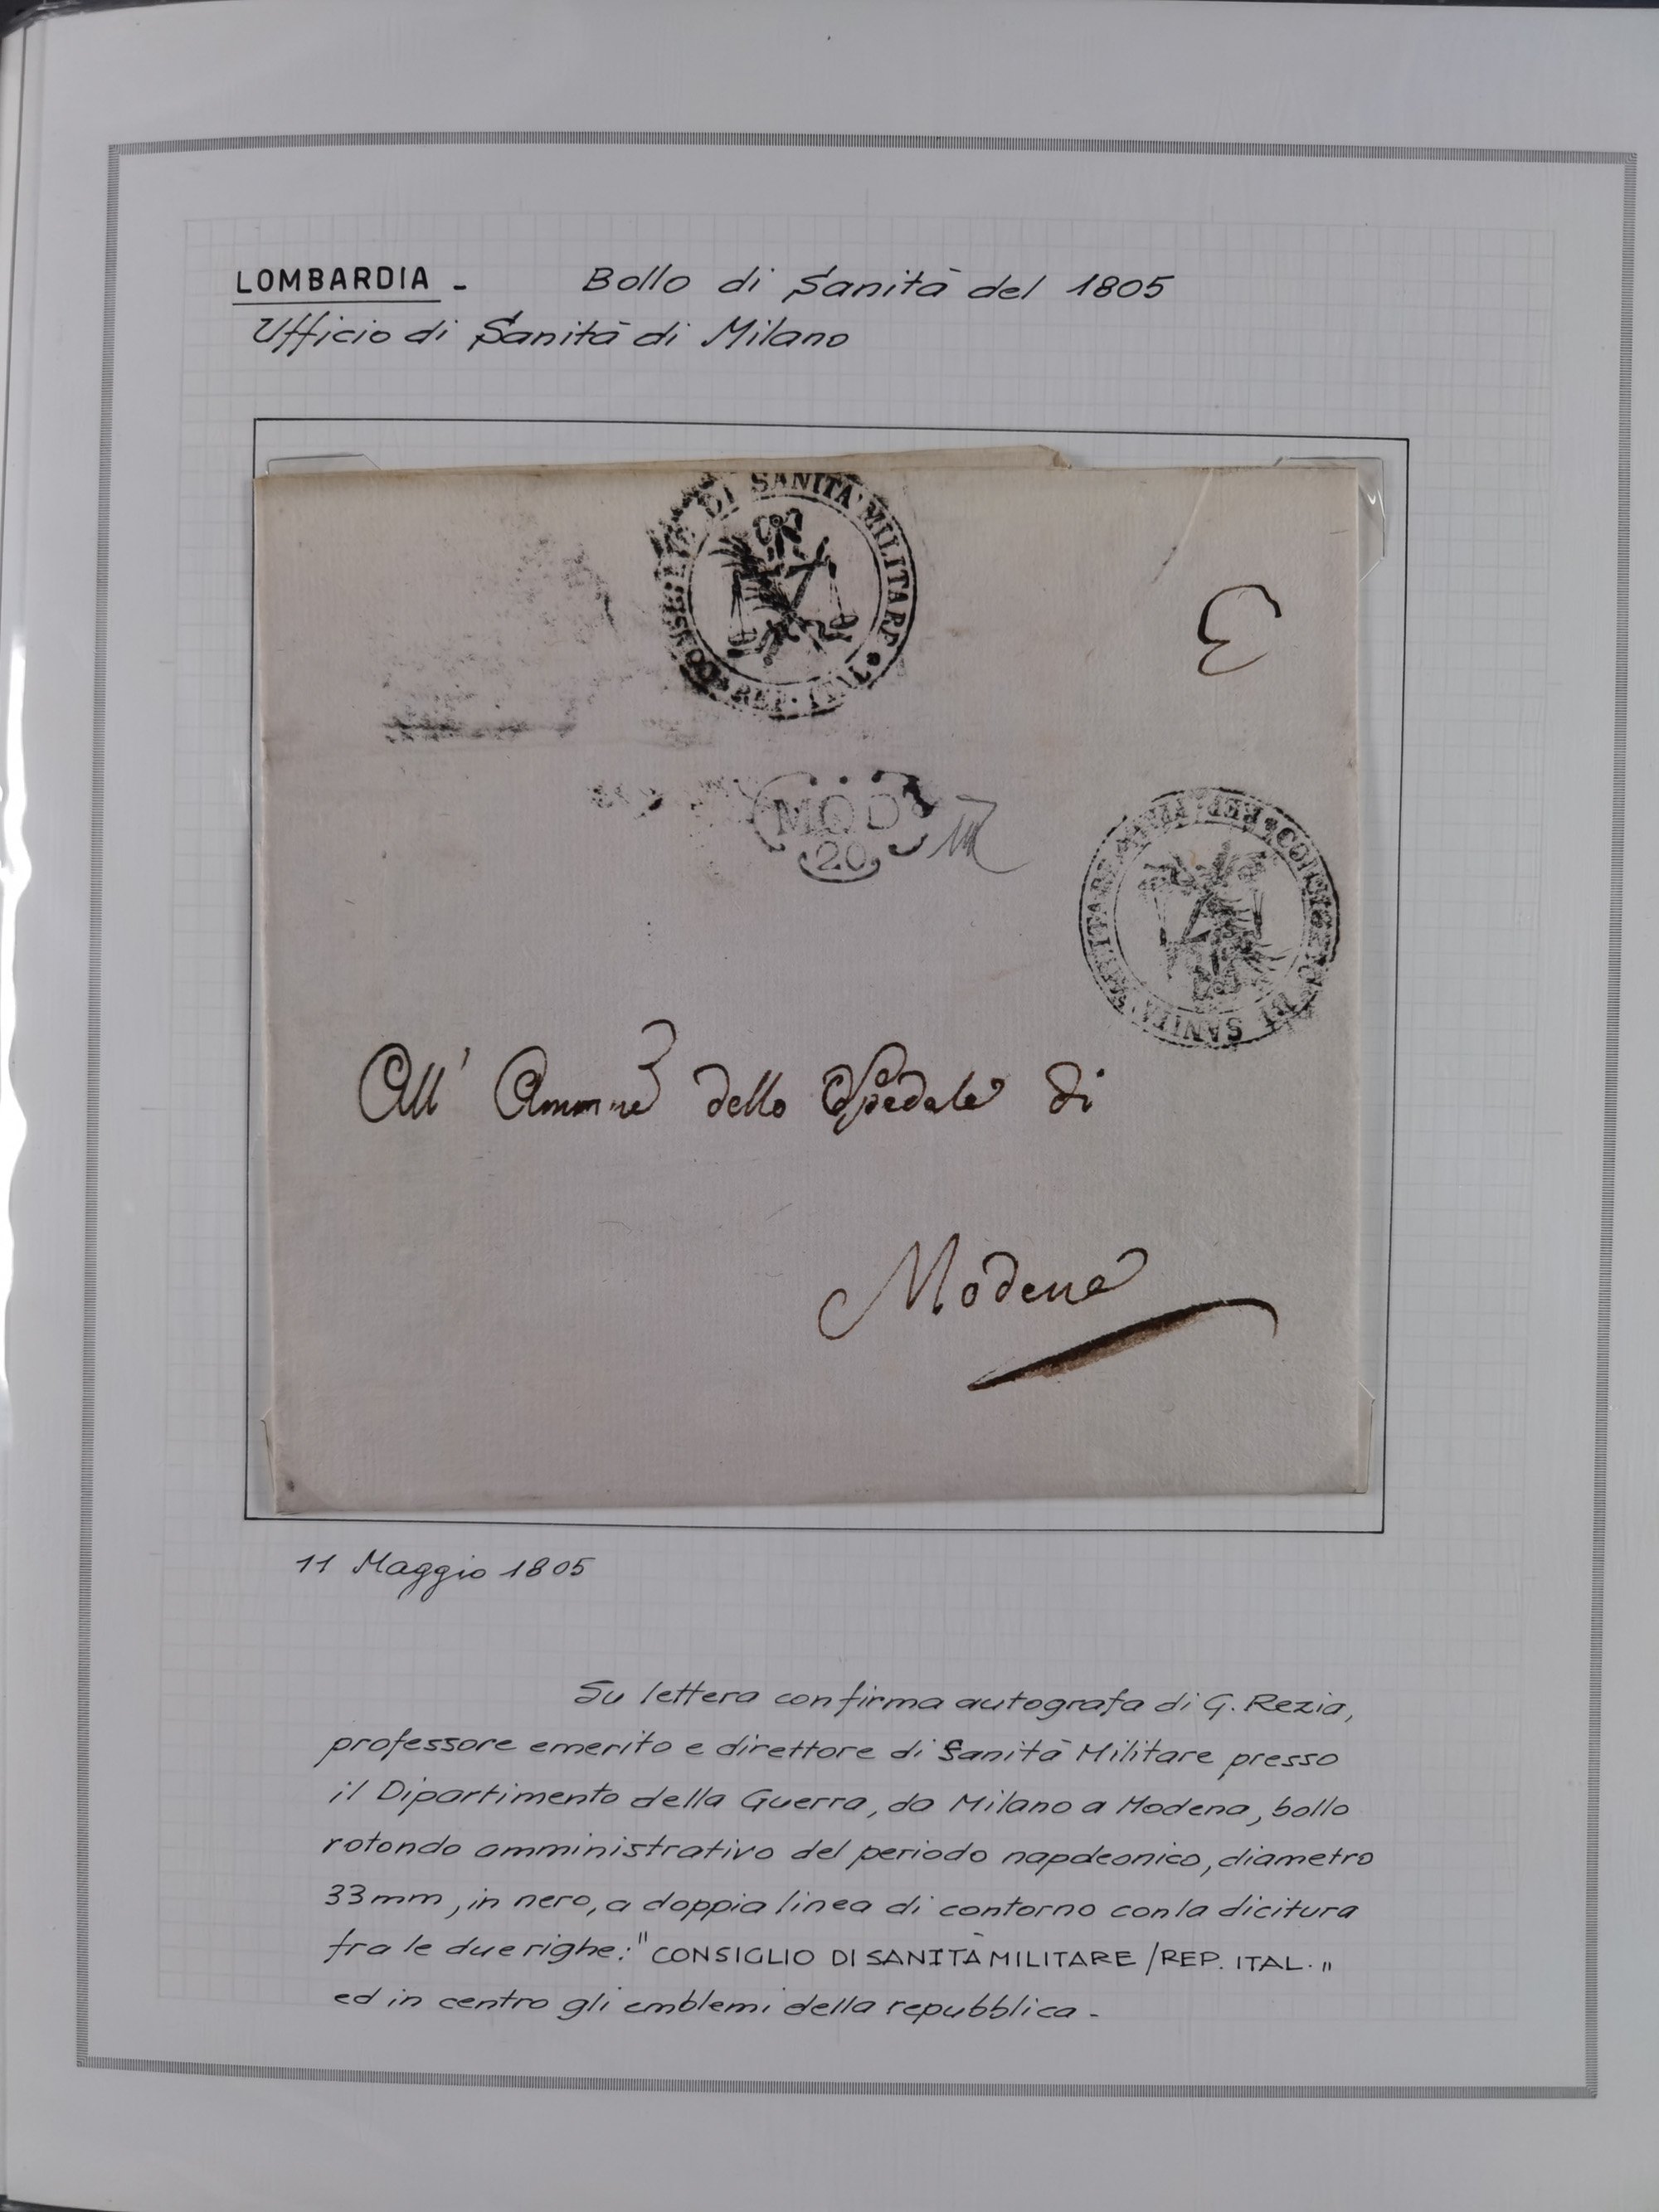 LOMBARDIA - Bollo di Sanità del 1805
Ufficio di Sanità di Milano
DI SANITA' MILITARE * REP. ITAL
3
MOD
20
SANITA' MILITARE REP. ITAL * CONSIGLIO DI
All' Amm.ne dello Spedale di
Modena
11 Maggio 1805
Su lettera con firma autografa di G. Rezia,
professore emerito e direttore di Sanità Militare presso
il Dipartimento della Guerra, da Milano a Modena, bollo
rotondo amministrativo del periodo napoleonico, diametro
33mm, in nero, a doppia linea di contorno con la dicitura
fra le due righe: "CONSIGLIO DI SANITÀ MILITARE / REP. ITAL."
ed in centro gli emblemi della repubblica -